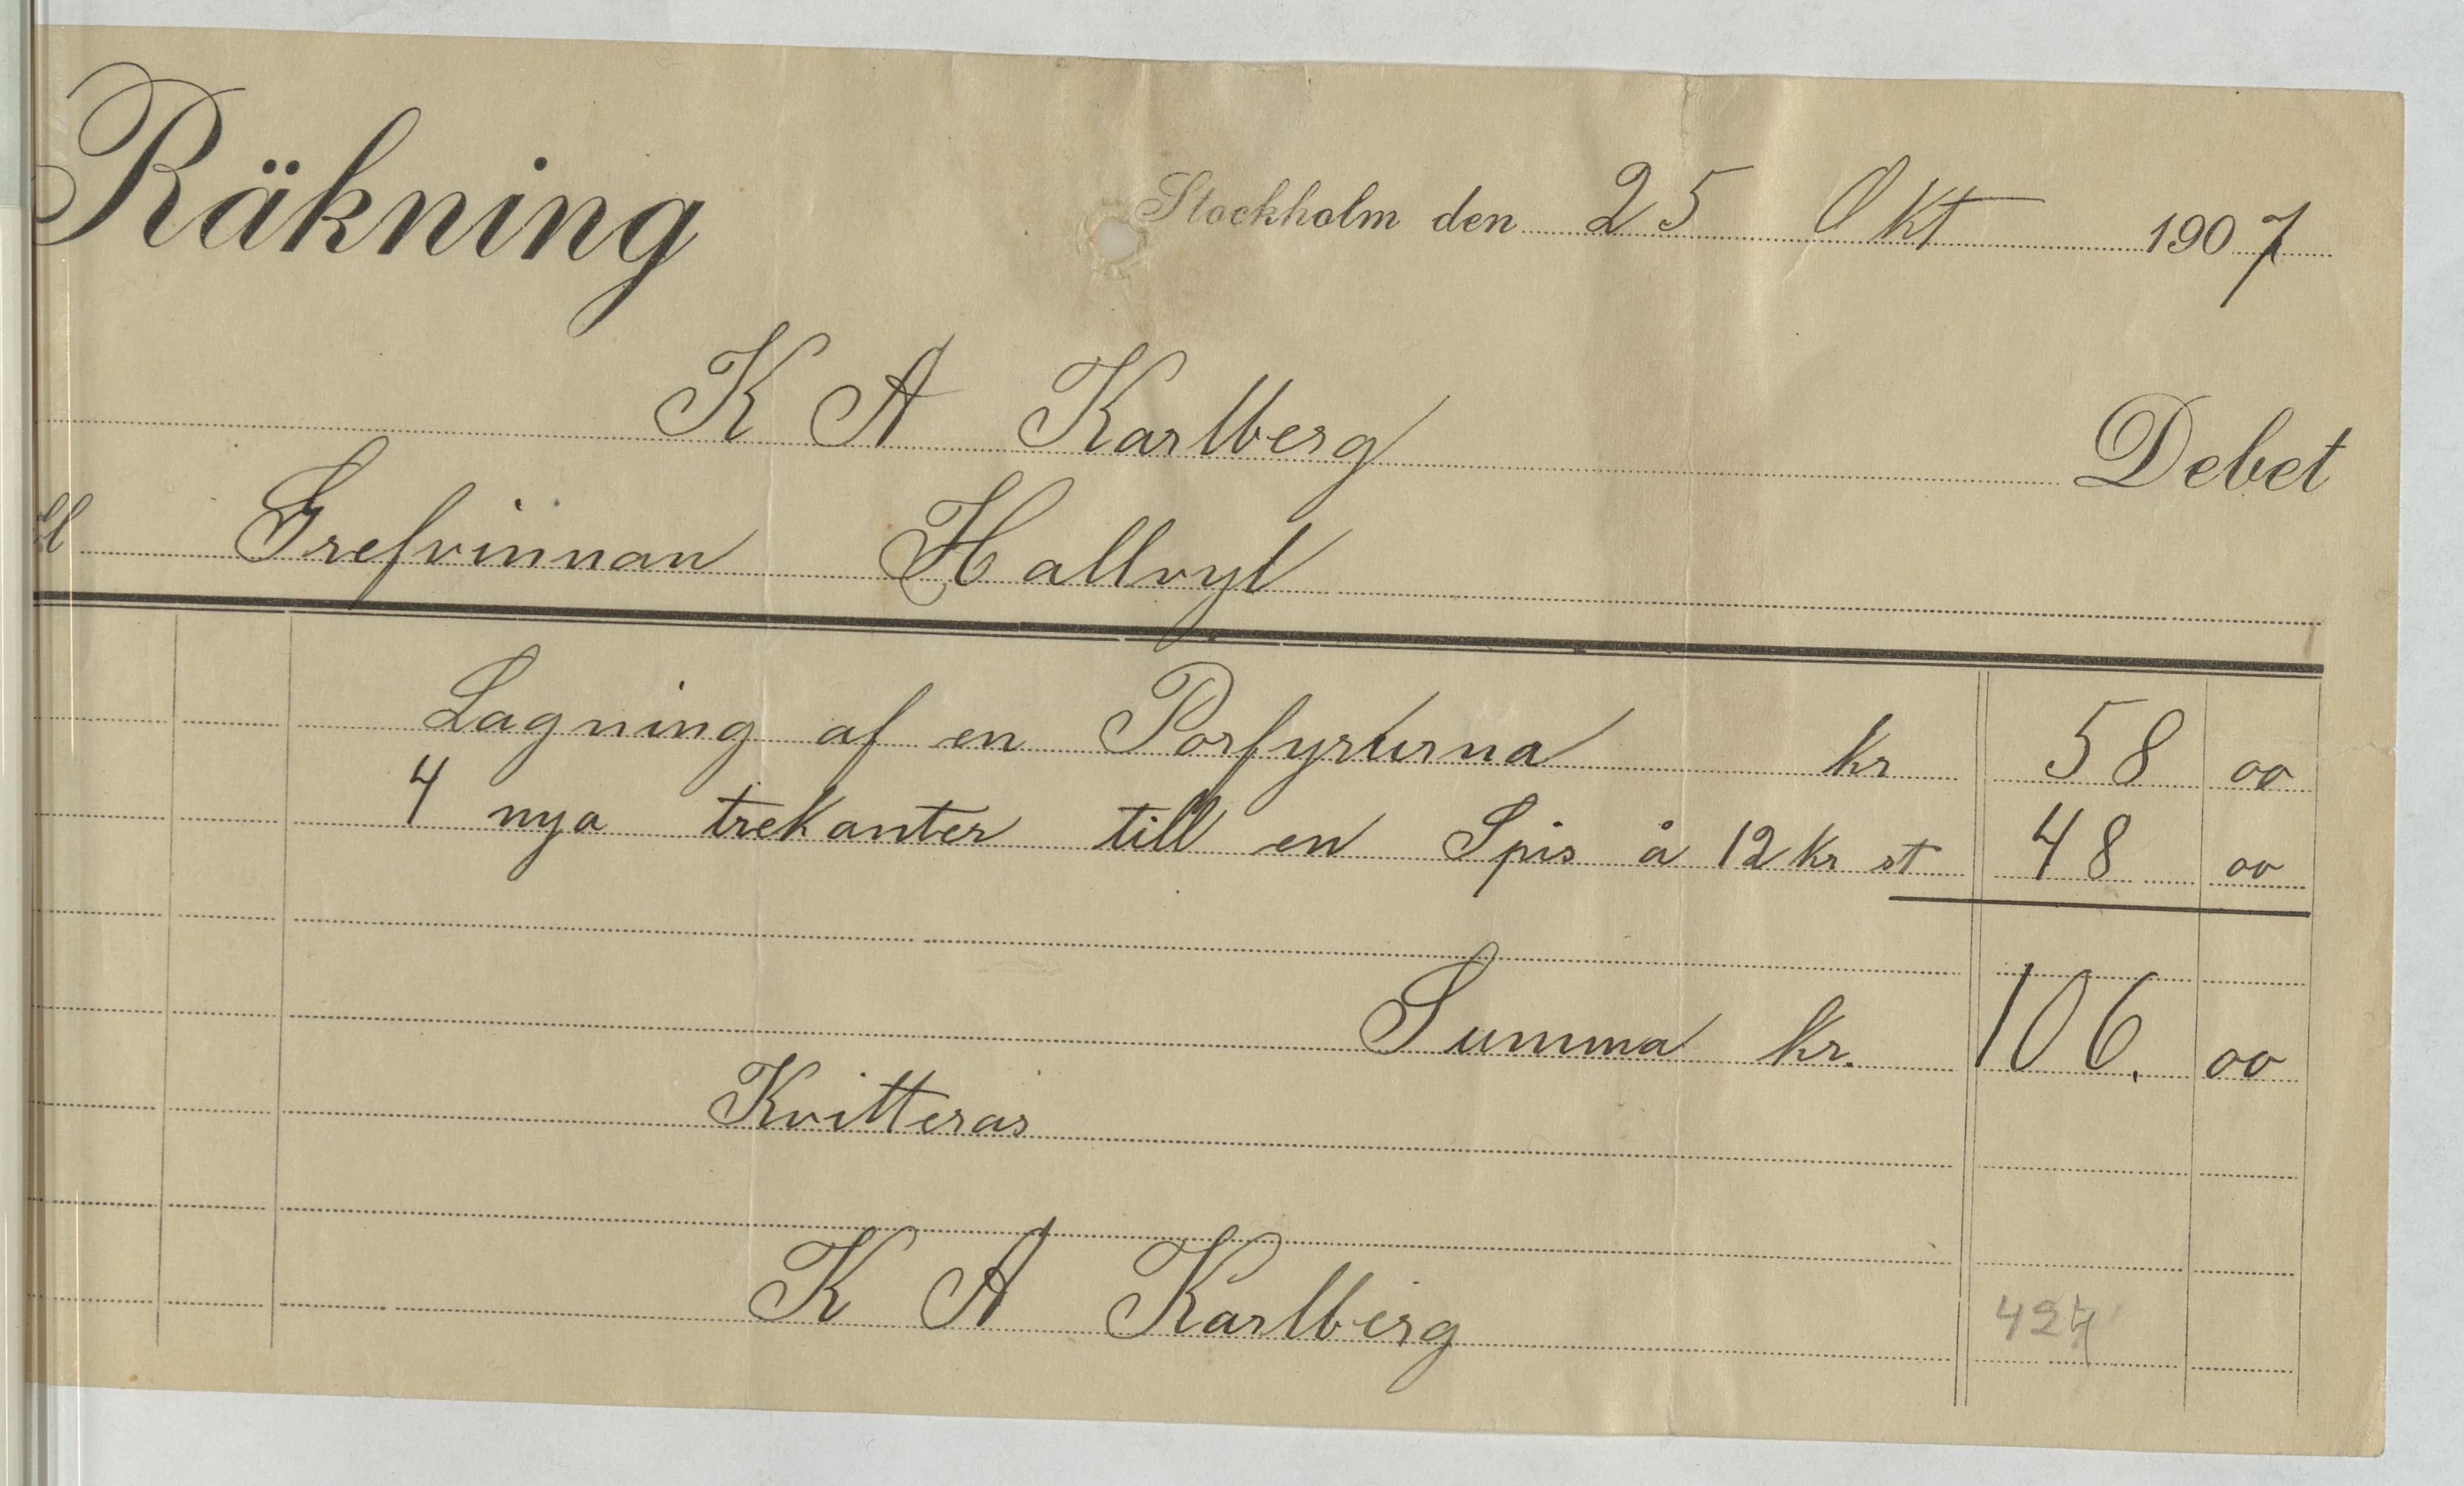 Räkning
Stockholm den 25 Okt 1907
K A Karlberg Debet
Grefvinnan Hallvyl
Lagning af en Porfyrurna kr 58 00
4 nya trekanter till en Spis à 12 kr st 48 00
Summa kr. 106. 00
Kvitteras
K A Karlberg